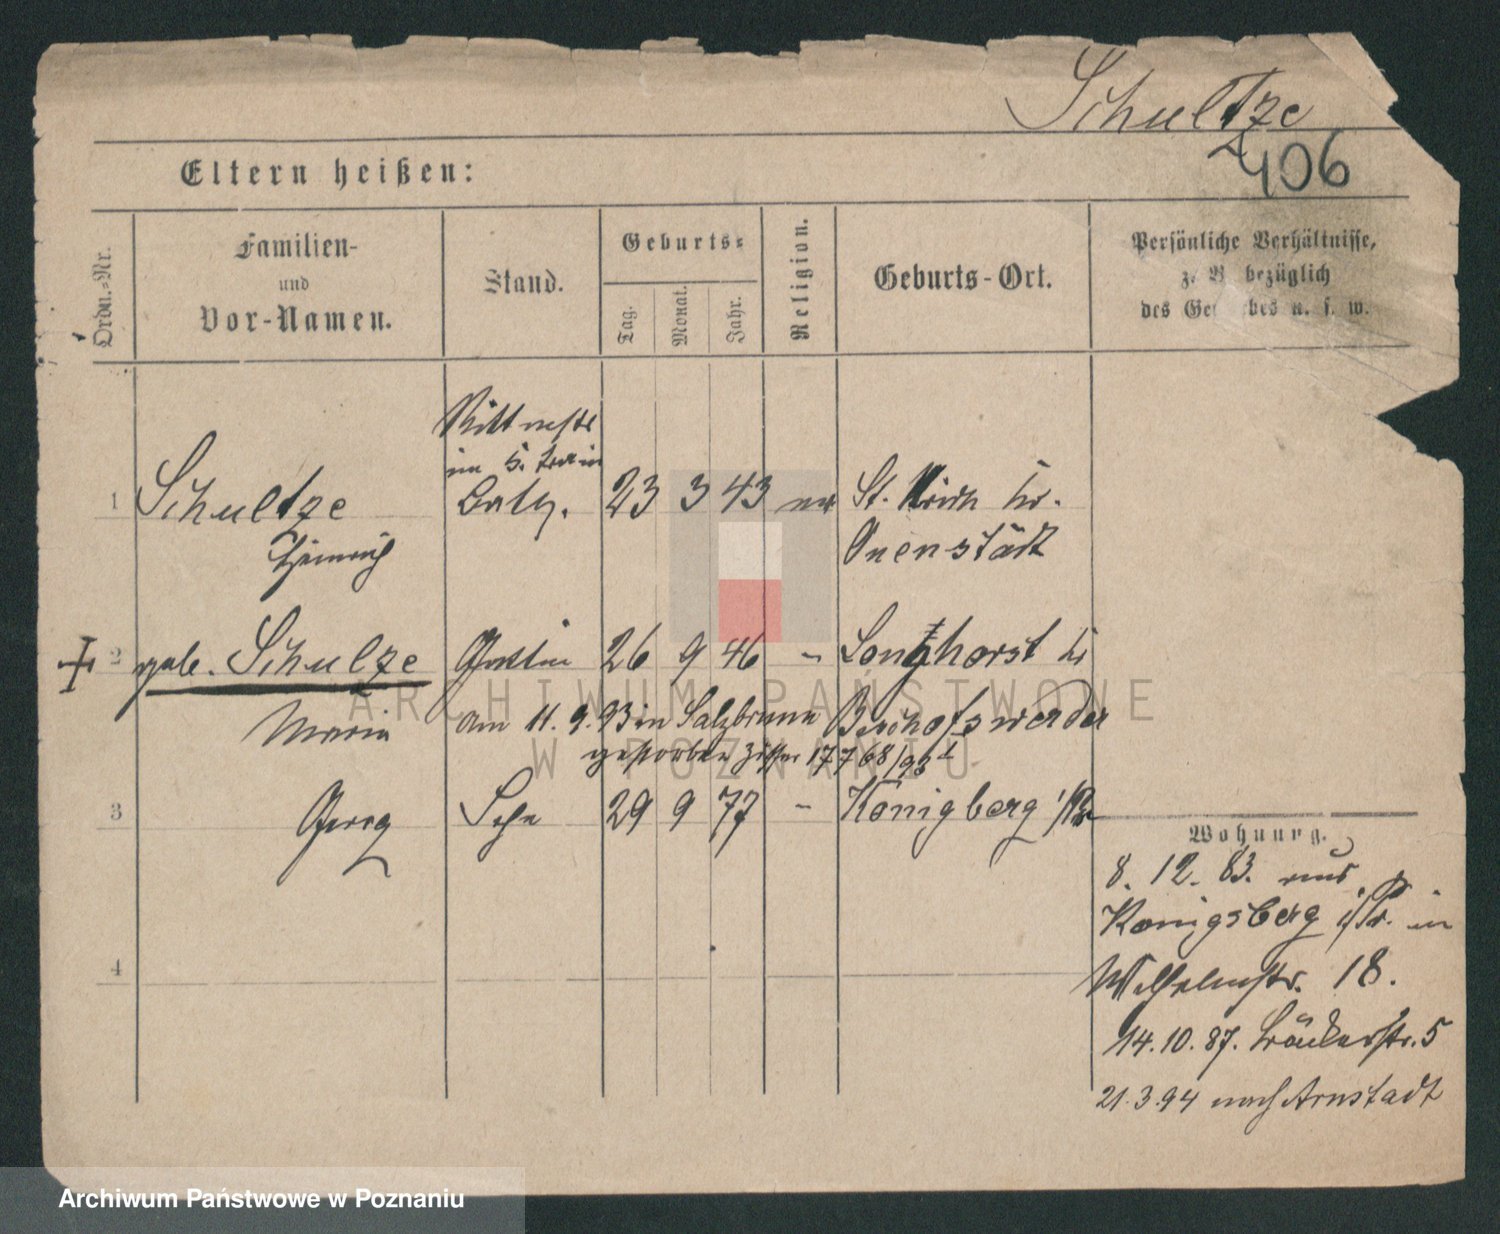 Schultze
406
Eltern heißen:
Ordn.-Nr.
Familien-
und
Vor-Namen.
Stand.
Geburts-
Tag.
Monat.
Jahr.
Religion.
Geburts-Ort.
Persönliche Verhältnisse,
z. B. bezüglich
des Gewerbes u. s. w.
Rittmstr
im 5. Train
1 Schultze Batl. 23 3 43 St. Kr.
Heinrich
2 geb. Schulze Gattin 26 9 46 – Longhorst Kr
Maria am 11.9.93 in Salzbrunn Bischofswerder
gestorben Ziffer 17768/93
3 Georg Sohn 29 9 77 – Königberg i/Pr
4
Wohnung.
8. 12. 83. aus
Konigsberg i/Pr. in
Wilhelmstr. 18.
14.10.87. 5
21.3.94 nach Arnstadt
ARCHIWUM PAŃSTWOWE
W POZNANIU
Archiwum Państwowe w Poznaniu